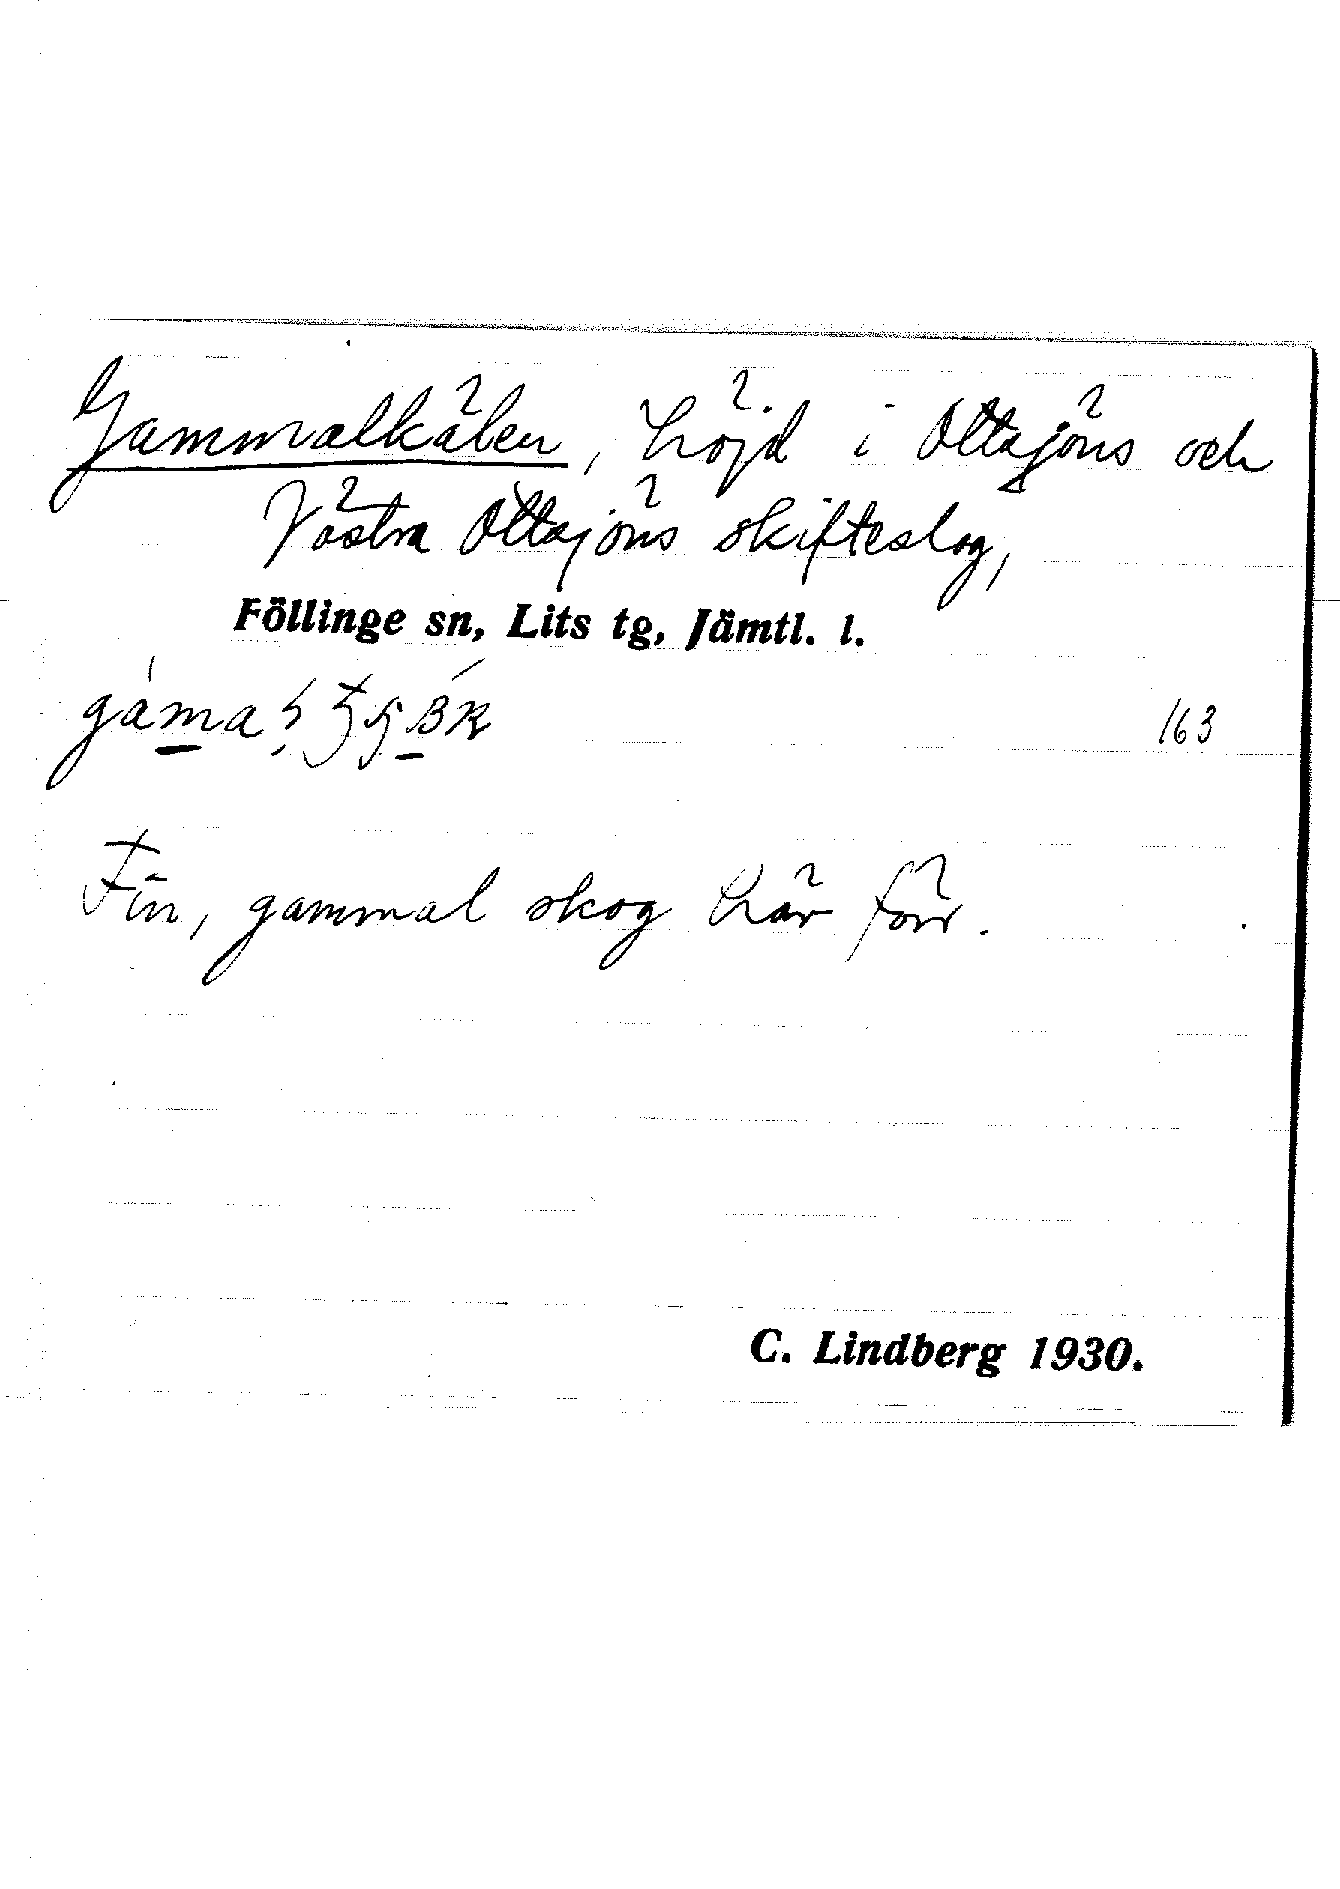 Gammalkälen, höjd i Ottsjöns och
Västra Ottsjöns skifteslag,
Föllinge sn, Lits tg, Jämtl. l.
163
Fin, gammal skog här förr.
C. Lindberg 1930.